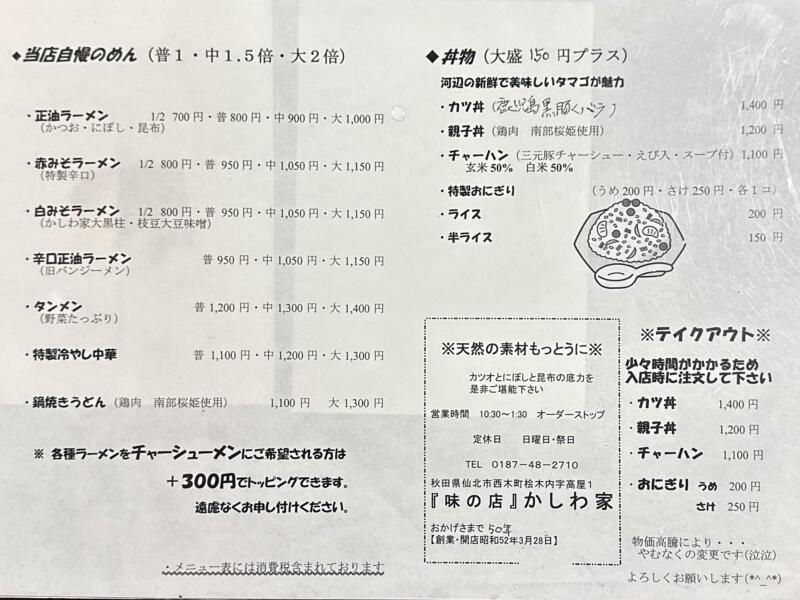 ◆当店自慢のめん（普１・中１.５倍・大２倍）
・正油ラーメン 1/2 700円・普 800円・中 900円・大 1,000円
（かつお・にぼし・昆布）
・赤みそラーメン 1/2 800円・普 950円・中 1,050円・大 1,150円
（特製辛口）
・白みそラーメン 1/2 800円・普 950円・中 1,050円・大 1,150円
（かしわ家大黒柱・枝豆大豆味噌）
・辛口正油ラーメン 普 950円・中 1,050円・大 1,150円
（旧バンジーメン）
・タンメン 普 1,200円・中 1,300円・大 1,400円
（野菜たっぷり）
・特製冷やし中華 普 1,100円・中 1,200円・大 1,300円
・鍋焼きうどん（鶏肉 南部桜姫使用） 1,100円 大 1,300円
※ 各種ラーメンをチャーシューメンにご希望される方は
＋300円でトッピングできます。
遠慮なくお申し付けください。
・メニュー表には消費税含まれております
◆丼物（大盛 150 円プラス）
河辺の新鮮で美味しいタマゴが魅力
・カツ丼（鹿児島黒豚くバラ） 1,400円
・親子丼（鶏肉 南部桜姫使用） 1,200円
・チャーハン（三元豚チャーシュー・えび入・スープ付）1,100円
玄米50% 白米50%
・特製おにぎり （うめ200円・さけ250円・各１コ）
・ライス 200円
・半ライス 150円
※天然の素材もっとうに※
カツオとにぼしと昆布の底力を
是非ご堪能下さい
営業時間 10:30～1:30 オーダーストップ
定休日 日曜日・祭日
TEL 0187-48-2710
秋田県仙北市西木町桧木内字高屋1
『味の店』かしわ家
おかげさまで 50年
【創業・開店昭和52年3月28日】
※テイクアウト※
少々時間がかかるため
入店時に注文して下さい
・カツ丼 1,400円
・親子丼 1,200円
・チャーハン 1,100円
・おにぎり うめ 200円
さけ 250円
物価高騰により・・・
やむなくの変更です(泣泣)
よろしくお願いします(*^_^*)